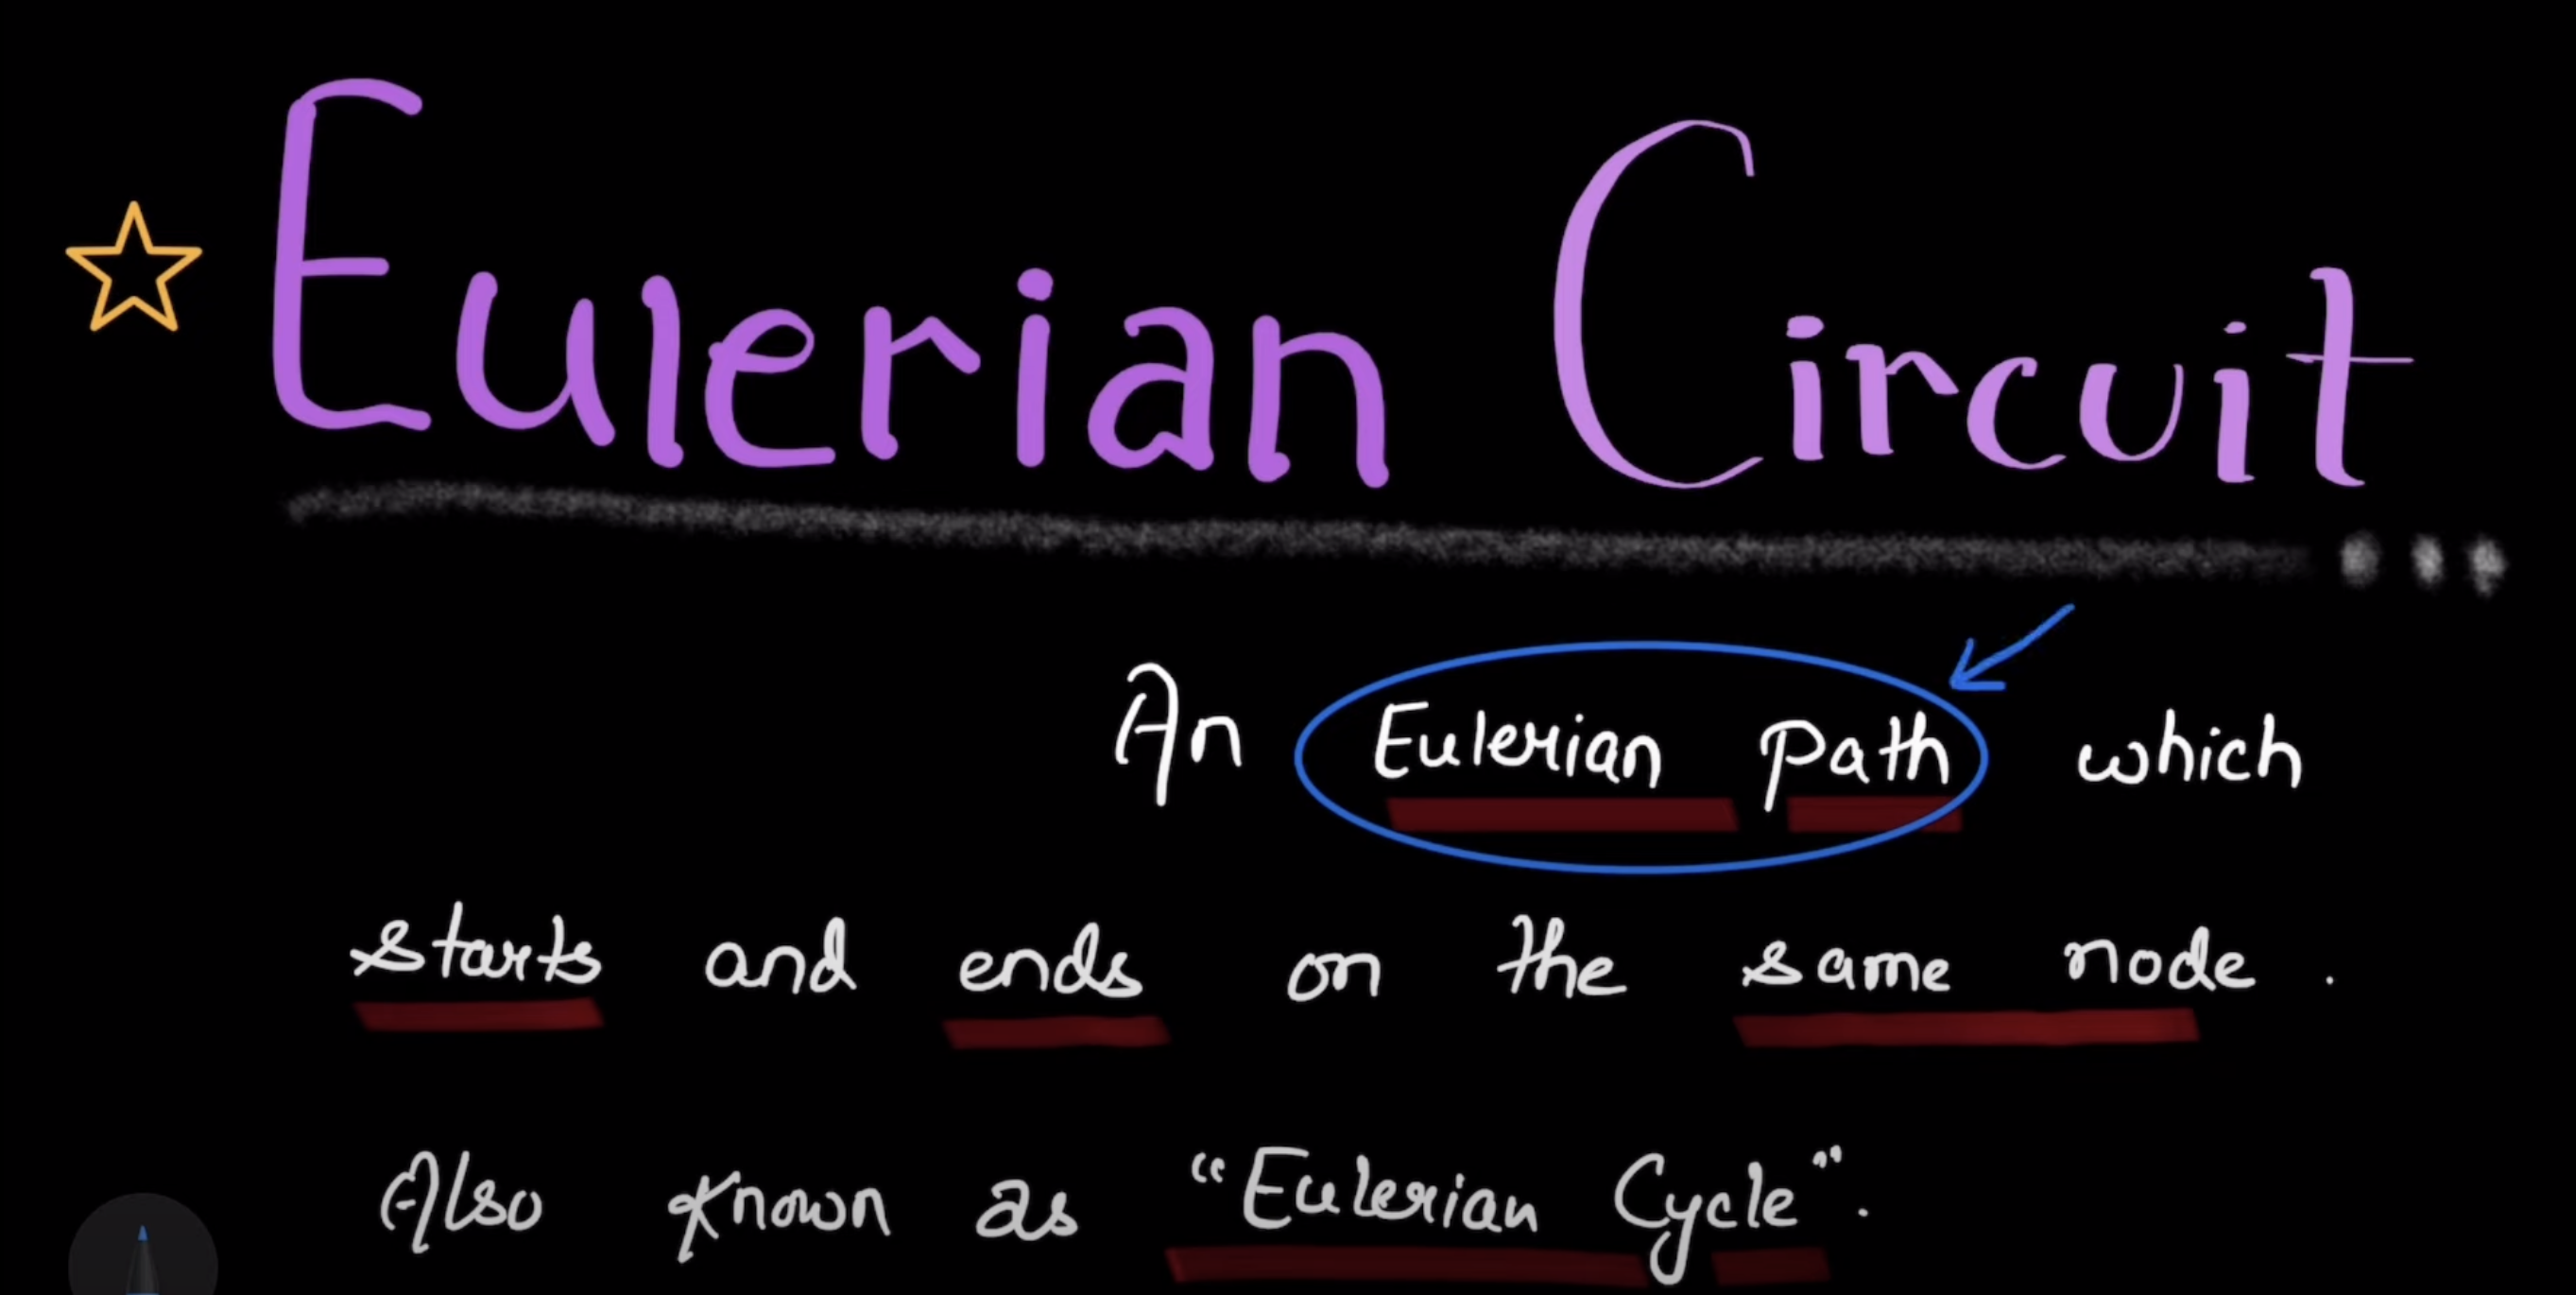 Eulerian Circuit
An Eulerian path which
starts and ends on the same node.
Also known as "Eulerian Cycle".